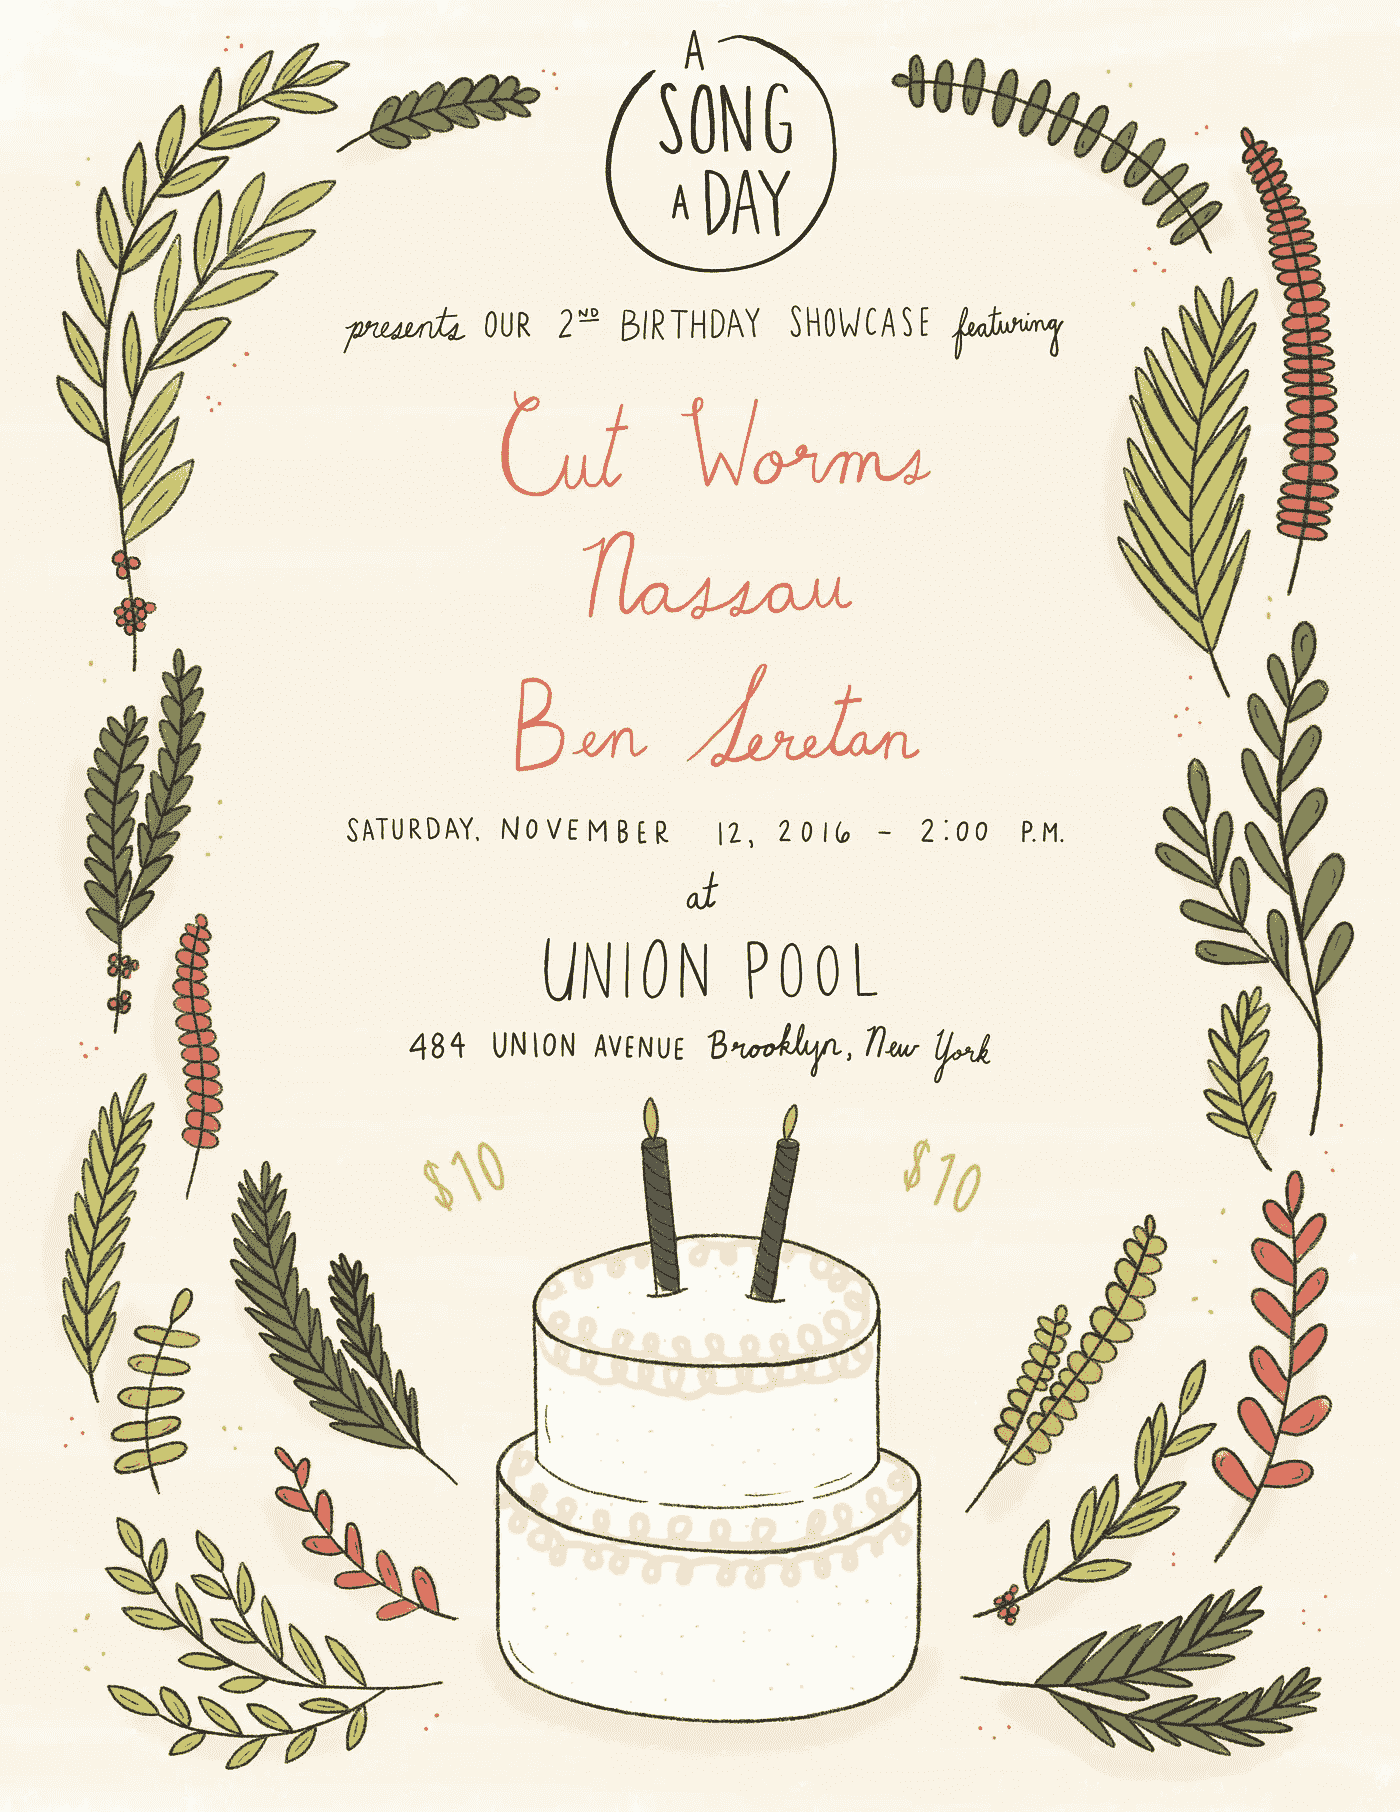 A
SONG
A DAY
presents OUR 2ND BIRTHDAY SHOWCASE featuring
Cut Worms
Nassau
Ben Seretan
SATURDAY, NOVEMBER 12, 2016 - 2:00 P.M.
at
UNION POOL
484 UNION AVENUE Brooklyn, New York
$10 $10